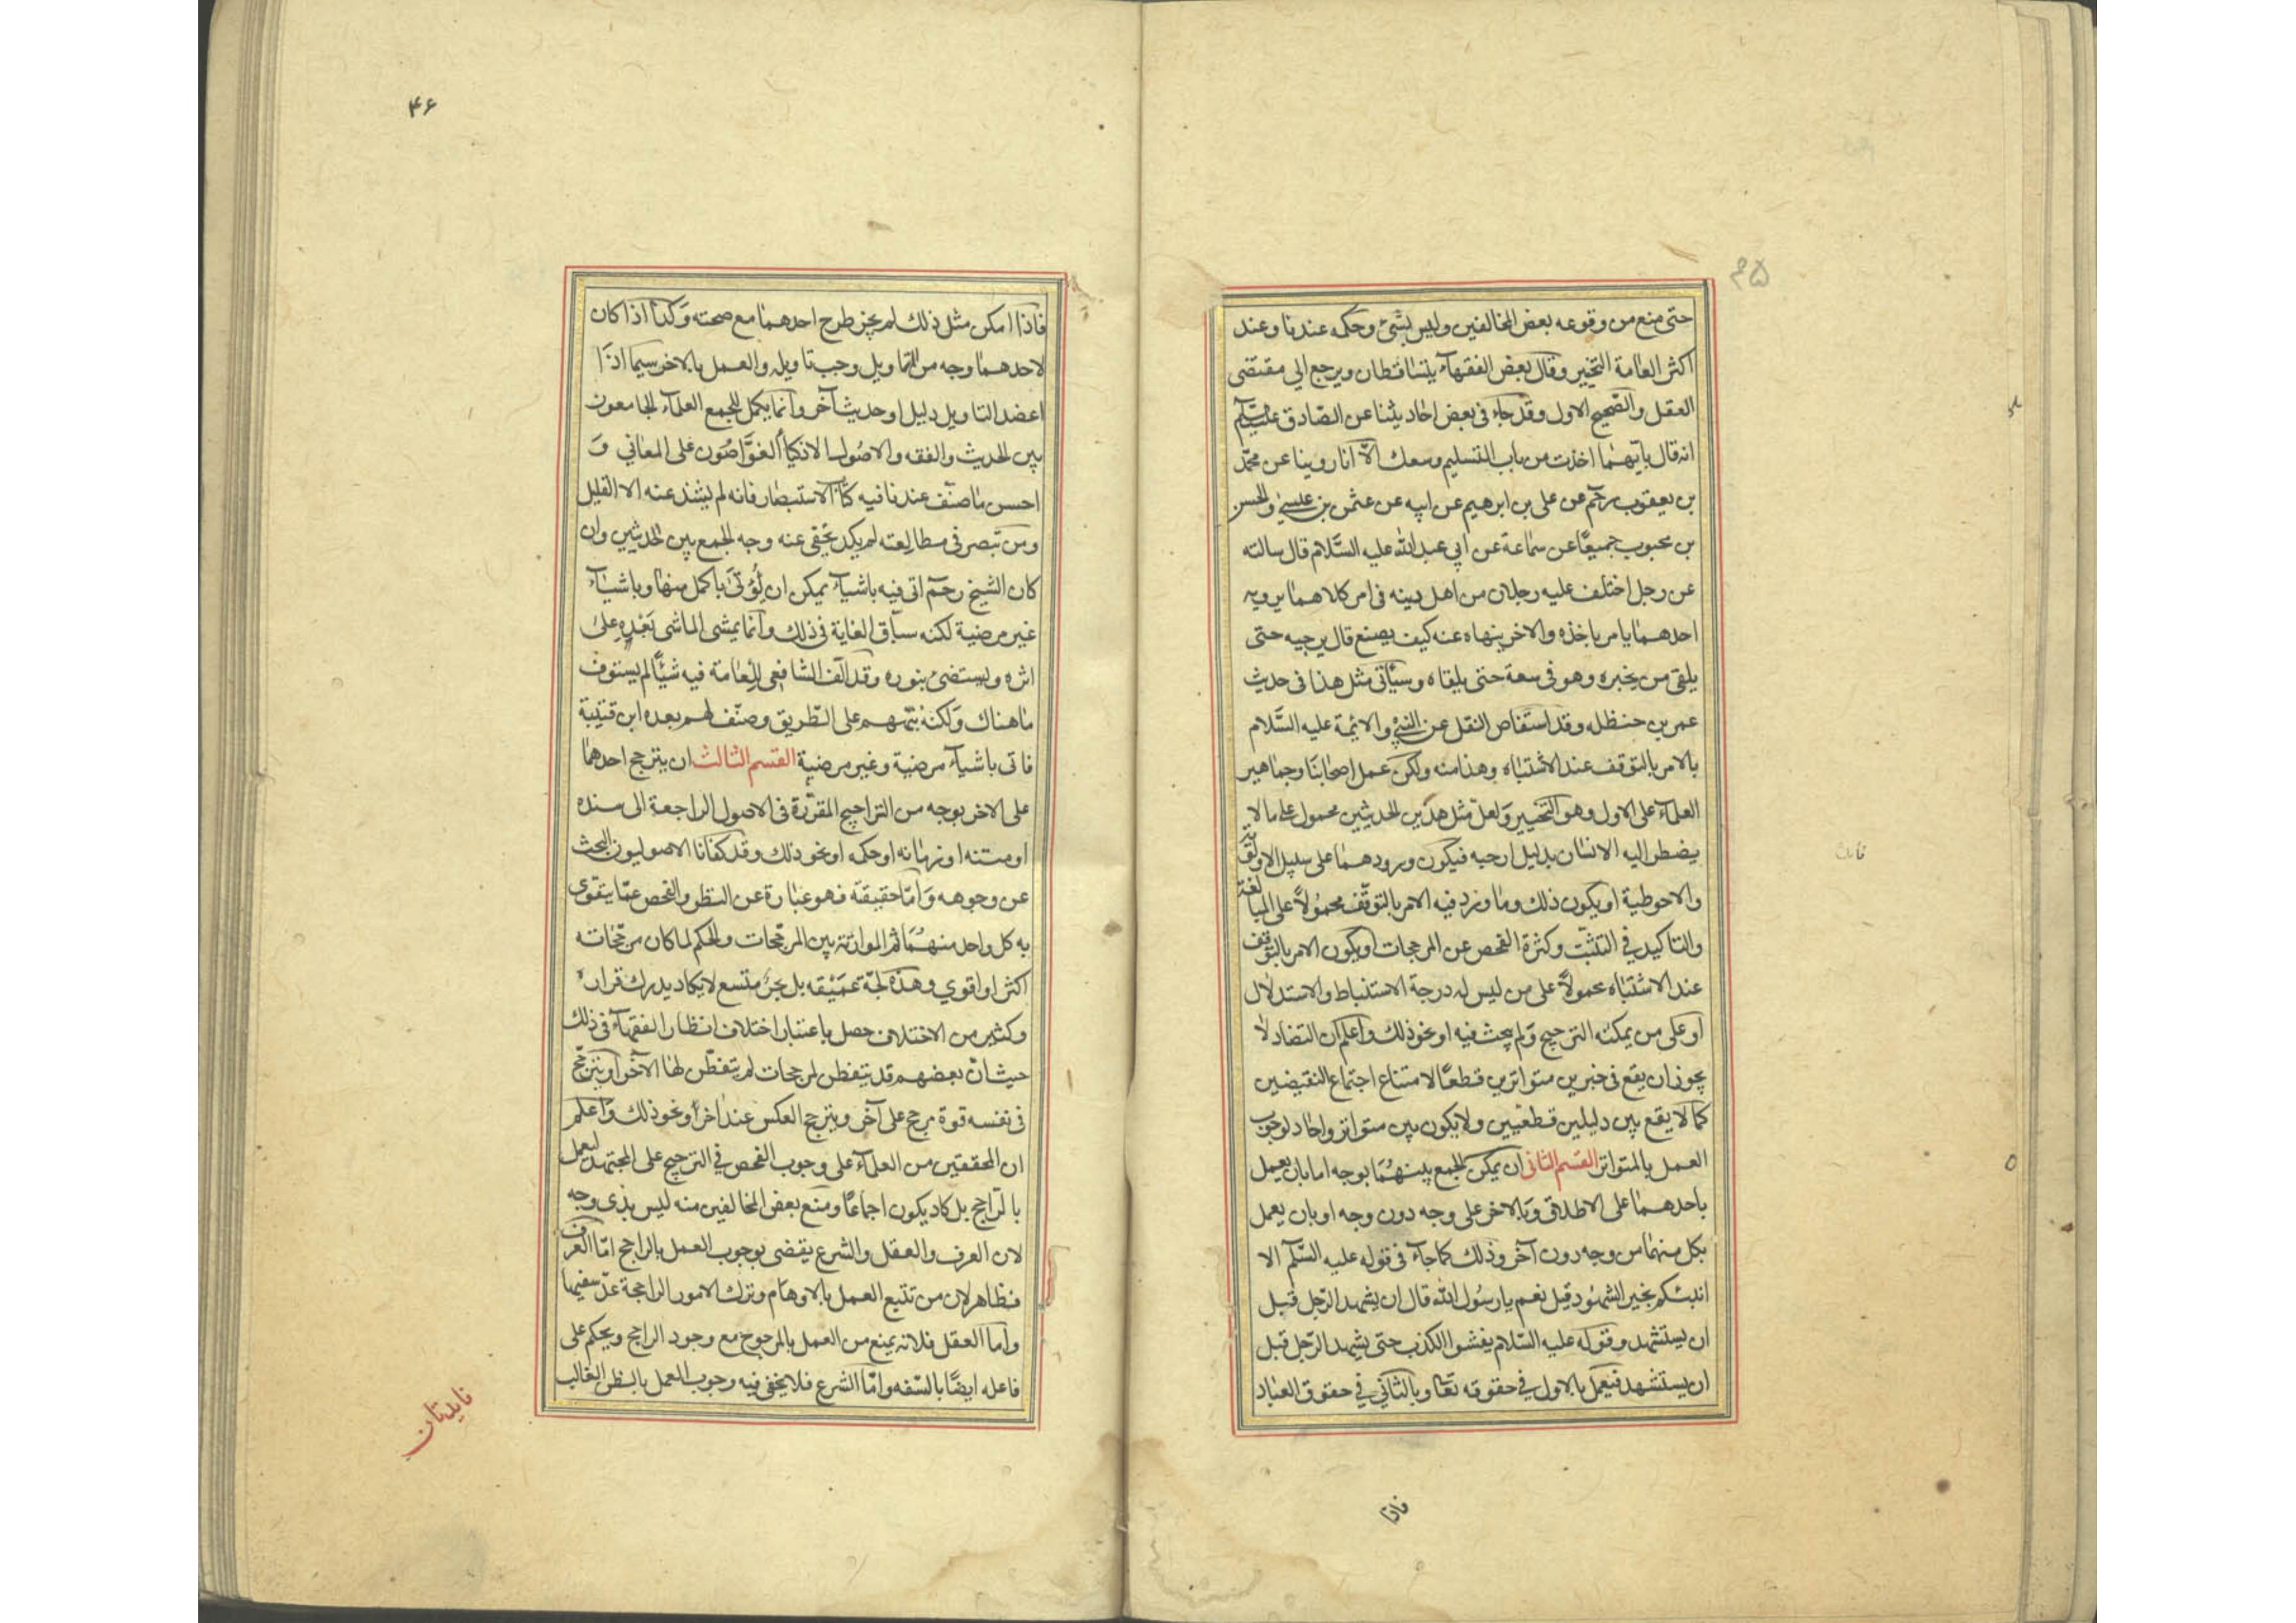 ۴۵
حتى منع من وقوعه بعض المخالفين وليس بشئ وحكمه عندنا وعند
اكثر العامة التخيير وقال بعض الفقهآء يتساقطان ويرجع الي مقتضى
العقل والصحيح الاول وقد جاء فى بعض احاديثنا عن الصادق عليه السلم
انه قال بايهما اخذت من باب التسليم وسعك الّا انا روينا عن محمد
بن يعقوب رحم عن على بن ابرهيم عن ابيه عن عثمن بن عيسى والحسن
بن محبوب جميعًا عن سماعة عن ابي عبد الله عليه السَّلام قال سالته
عن رجل اختلف عليه رجلان من اهل دينه فى امر كلاهما يرويه
احدهما يامر باخذه والاخر ينهاه عنه كيف يصنع قال يرجيه حتى
يلقى من يخبره وهو فى سعة حتى يلقاه وسيأتى مثل هذا فى حدث
عمر بن حنظله وقد استفاض النقل عن النبي والائمة عليه السَّلام
بالامر بالتوقف عند الاشتباه وهذا منه ولكن عمل اصحابنا وجماهير
العلمآء على الاول وهو التخيير ولعل مثل هذين الحديثين محمول على ما لا
يضطر اليه الانسان بدليل ارجه فيكون ورودهما على سبيل الاولوية
والاحوطية او يكون ذلك وما ورد فيه الامر بالتوقف محمولاً على المبالغة
والتاكيد في التثبّت وكثرة الفحص عن المرجحات او يكون الامر بالتوقف
عند الاشتباه محمولاً على من ليس له درجة الاستنباط والاستدلال
او على من يمكنه الترجيح ولم يبحث فيه او نحو ذلك واعلم ان التضاد لا
يجوز ان يقع فى خبرين متواترين قطعًا لامتناع اجتماع النقيضين
كما لا يقع بين دليلين قطعيين ولا يكون بين متواتر واحاد لوجوب
العمل بالمتواتر القسم الثانى ان يمكن الجمع بينهُما بوجه اما بان يعمل
باحدهما على الاطلاق وبالاخر على وجه دون وجه او بان يعمل
بكل منهما من وجه دون آخر وذلك كما جآء فى قوله عليه السّلم الا
انبئكم بخير الشهُود قيل نعم يا رسُول الله قال ان يشهد الرّجل قبل
ان يستشهد وقوله عليه السّلام يفشوا الكذب حتى يشهد الرّجل قبل
ان يستشهد فيعمل بالاول في حقوقه تعا وبالثاني في حقوق العباد
فاذا
۴۶
فاذا امكن مثل ذلك لم يجز طرح احدهما مع صحته وكذا اذا كان
لاحدهما وجه من التاويل وجب تاويله والعمل بالاخر سيما اذا
اعضد التاويل دليل او حديث آخر وانما يكمل للجمع العلمآء الجامعون
بين الحديث والفقه والاصُول الاذكيآء الغوَّاصُون على المعاني وَ
احسن ما صنّف عندنا فيه كتاب الاستبصار فانه لم يشذ عنه الا القليل
ومن تبصر فى مطالعته لم يكد يخفى عنه وجه الجمع بين الحديثين وان
كان الشيخ رحم اتى فيه باشيآء يمكن ان يُؤتى باكمل منها وباشيآء
غير مرضية لكنه سبّاق الغاية فى ذلك وانما يمشى الماشى بَعْدِه على
اثره ويستضئ بنوره وقد الّف الشافعى للعامة فيه شيئًا لم يستوف
ما هناك ولكنه بتههم على الطّريق وصنّف لهم بعده ابن قتيبة
فاتى باشيآء مرضية وغير مرضية القسم الثالث ان يترجح احدهما
على الاخر بوجه من التراجيح المقرّرة فى الاصول الراجعة الى سنده
او متنه او زمانه او حكمه او نحو ذلك وقد كفانا الاصوليون البحث
عن وجوهه وَامّا حقيقته فهو عبارة عن النظر والفحص عمّا يتقوى
به كل واحد منهُمَا ثم الموازنة بين المرجّحات والحكم لما كان مرجّحاته
اكثر او اقوي وهذه لجّة عميْقه بل بحرٌ متسع لا يكاد يدرك قراره
وكثير من الاختلاف حصل باعتبار اختلاف انظار الفقهآء فى ذلك
حيث انّ بعضهم قد يتفطن لمرجحات لم يتفطّن لها الآخر او يترجّح
فى نفسه قوة مرجح على آخر ويترجح العكس عند آخر او نحو ذلك واعلم
ان المحققين من العلمآء على وجوب الفحص في الترجيح على المجتهد ليعمل
بالرّاجح بل كاد يكون اجماعًا ومنع بعض المخالفين منه ليس بذى وجه
لان العرف والعقل والشرع يقضى بوجوب العمل بالراجح امّا العرف
فظاهر لان من تتبع العمل بالاوهام وترك الامور الراجحة عدّ سفيها
واما العقل فلانه يمنع من العمل بالمرجوح مع وجود الراجح ويحكم على
فاعله ايضًا بالسّفه وامّا الشرع فلا يخفى فيه وجوب العمل بالظن الغالب
فايدتان